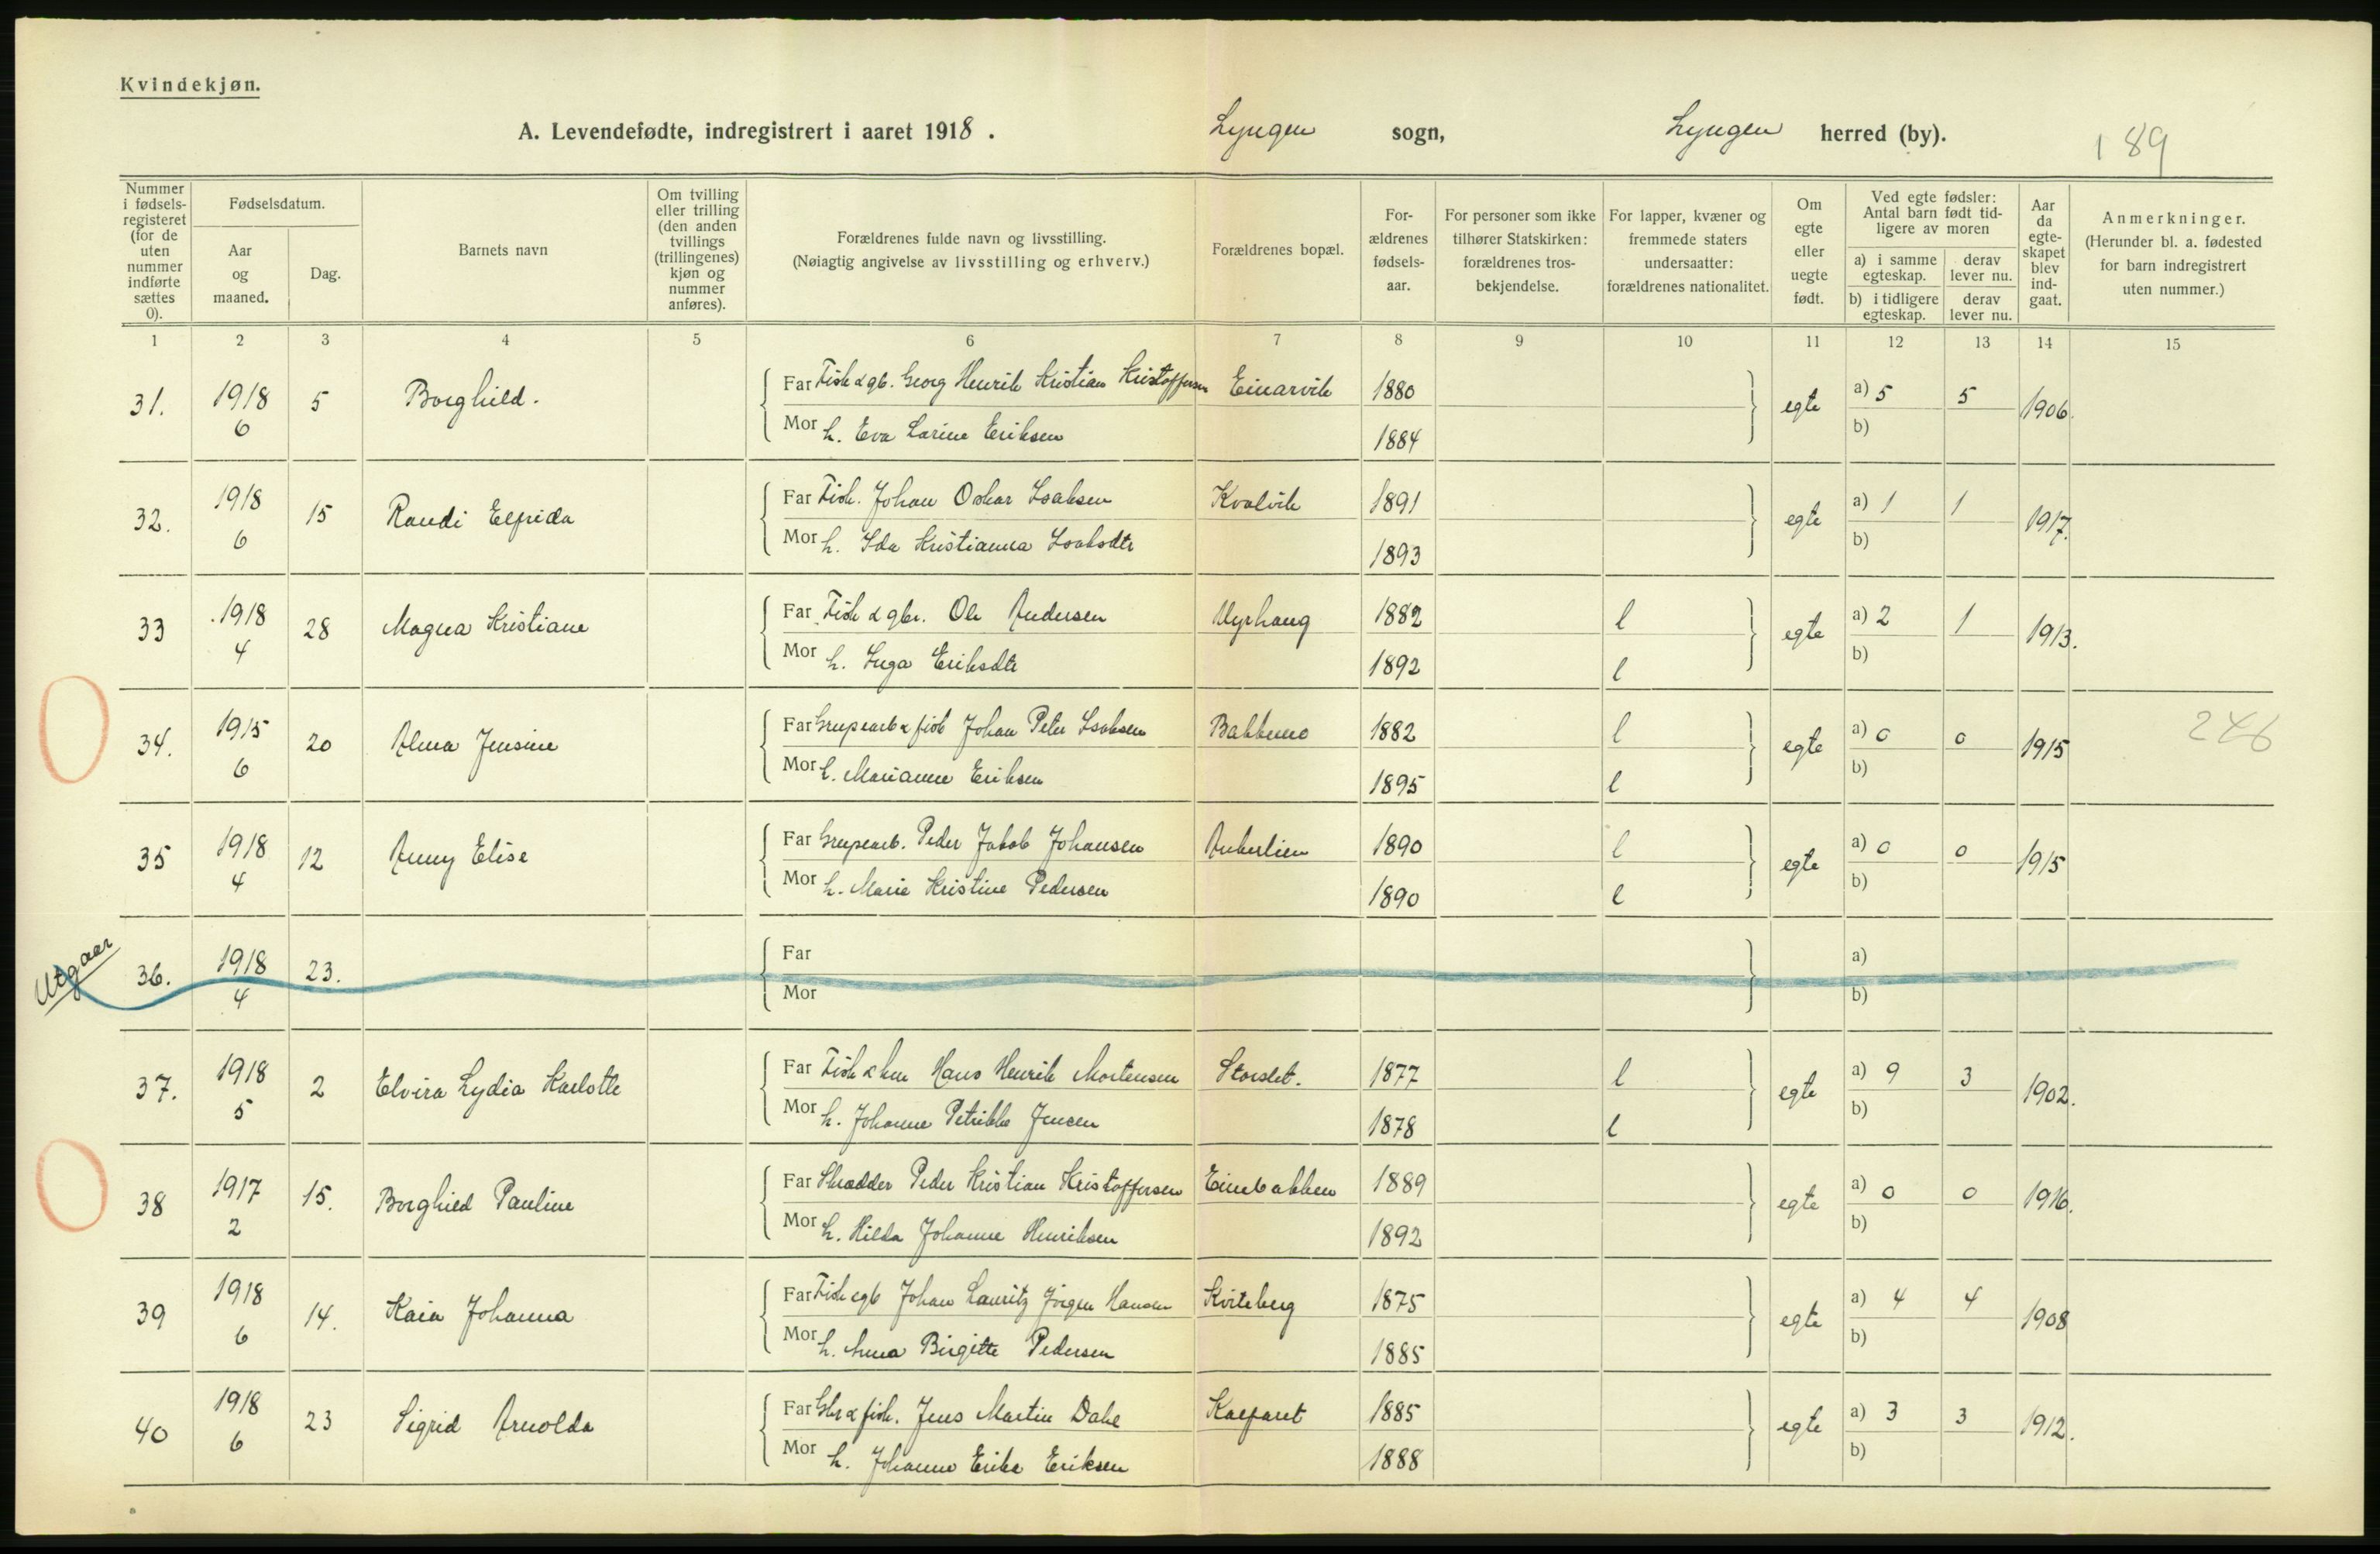 Kvindekjøn.
A. Levendefødte, indregistrert i aaret 1918. Lyngen sogn, Lyngen herred (by). 189
Nummer i fødselsregisteret (for de uten nummer indførte sættes 0).
Fødselsdatum.
Aar og maaned.
Dag.
Barnets navn
Om tvilling eller trilling (den anden tvillings (trillingenes) kjøn og nummer anføres).
Forældrenes fulde navn og livsstilling.
(Nøiagtig angivelse av livsstilling og erhverv.)
Forældrenes bopæl.
For-ældrenes fødsels-aar.
For personer som ikke tilhører Statskirken: forældrenes tros-bekjendelse.
For lapper, kvæner og fremmede staters undersaatter: forældrenes nationalitet.
Om egte eller uegte født.
Ved egte fødsler: Antal barn født tid-ligere av moren
a) i samme egteskap. derav lever nu.
b) i tidligere egteskap. derav lever nu.
Aar da egte-skapet blev ind-gaat.
Anmerkninger.
(Herunder bl. a. fødested for barn indregistrert uten nummer.)
1 2 3 4 5 6 7 8 9 10 11 12 13 14 15
31. 1918 6 5 Borghild. Far Fisk & gb. Georg Henrik Kristian Kristoffersen Einarvik 1880 egte a) 5 5 1906.
Mor h. Eva Larine Eriksen 1884 b)
32. 1918 6 15 Randi Elfrida Far Fisk. Johan Oskar Isaksen Kvalvik 1891 egte a) 1 1 1917.
Mor h. Ida Kristianna Isaksdtr 1893 b)
33 1918 4 28 Magna Kristiane Far Fisk & gbr. Ole Andersen Myrhaug 1882 l egte a) 2 1 1913.
Mor h. Inga Eriksdtr 1892 l b)
34. 1915 6 20 Alma Jensine Far Grupearb & fisk Johan Peter Isaksen Bakkemo 1882 l egte a) 0 0 1915 246
Mor h. Marianne Eriksen 1895 l b)
35 1918 4 12 Anny Elise Far Grupearb. Peder Jakob Johansen Ankerlien 1890 l egte a) 0 0 1915
Mor h. Marie Kristine Pedersen 1890 l b)
Utgaar 36. 1918 4 23. Far a)
Mor b)
37. 1918 5 2 Elvira Lydia Karlotte Far Fisk & Hans Henrik Mortensen Storslet. 1877 l egte a) 9 3 1902.
Mor h. Johanne Petrikke Jensen 1878 l b)
38 1917 2 15. Borghild Pauline Far Skrædder Peder Kristian Kristoffersen Einebakken 1889 egte a) 0 0 1916.
Mor h. Hilda Johanne Henriksen 1892 b)
39 1918 6 14. Kaia Johanna Far Fisk & gb Johan Lauritz Jørgen Hansen Kviteberg 1875 egte a) 4 4 1908
Mor h. Anna Birgitte Pedersen 1885 b)
40 1918 6 23 Sigrid Arnolda Far Gbr & fisk. Jens Martin Dahl Kaafaret 1885 egte a) 3 3 1912.
Mor h. Johanne Erika Eriksen 1888 b)